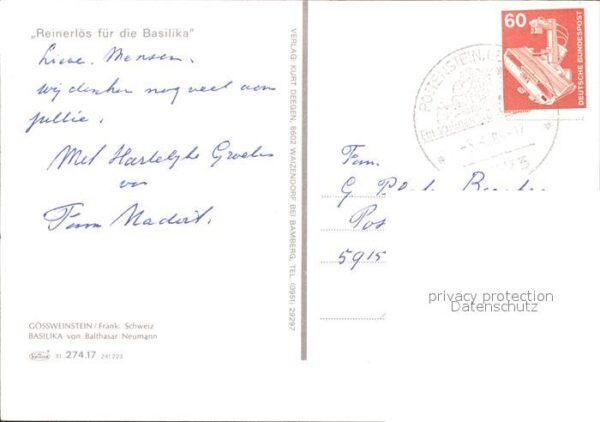 „Reinerlös für die Basilika"
Lieve Mensen,
wij denken nog veel aan
jullie.
Met Hartelyke Groeten
van
Fam
GÖSSWEINSTEIN / Fränk. Schweiz
BASILIKA von Balthasar Neumann
51 274.17 241 223
VERLAG KURT DEEGEN, 8602 WAIZENDORF BEI BAMBERG, TEL. (0951) 29297
POTTENSTEIN
60
DEUTSCHE BUNDESPOST
Fam.
G
Pos
5915
privacy protection
Datenschutz